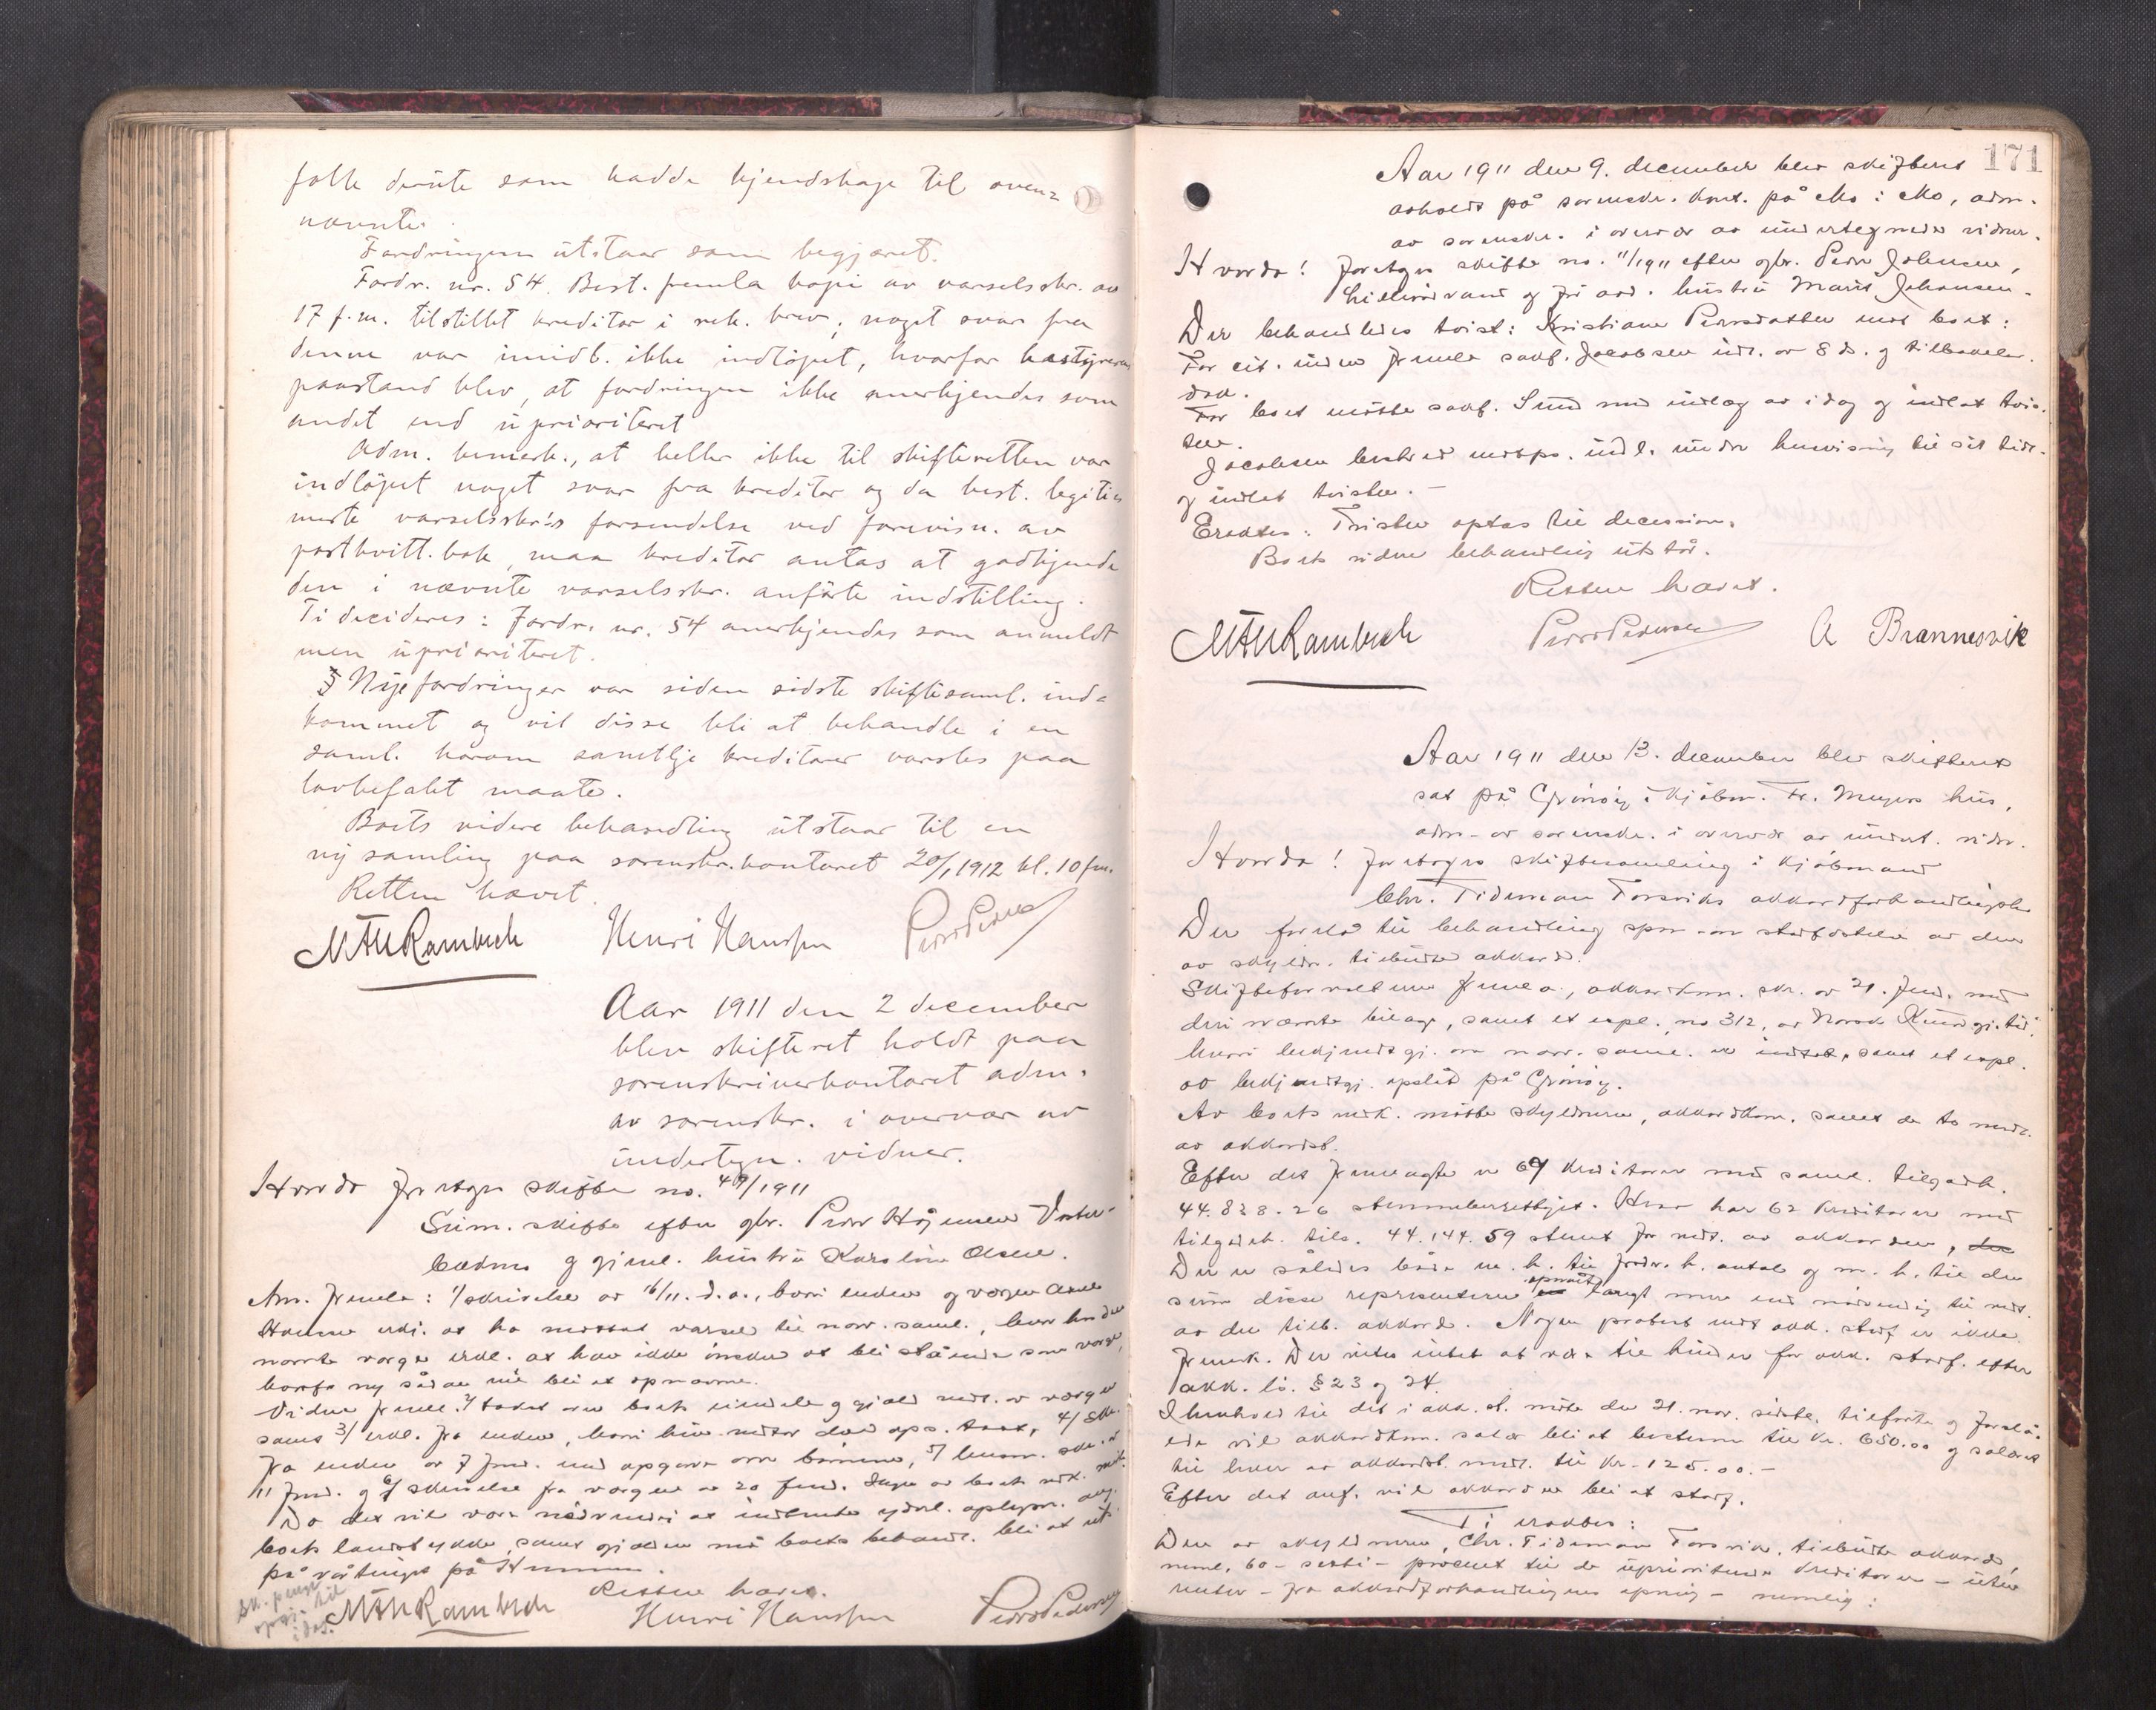 folk derute som hadde kjendskap til oven=
nævnte.
Fordringen utstaar som begjæret.
Fordr. nr. 54. Best. fremla kopi av varselsskr. av
17 f.m. tilstillet kreditor i rek. brev; noget svar fra
denne var imidl. ikke indløpet, hvorfor bostyrerens
paastand blev, at fordringen ikke anerkjendes som
andet end uprioriteret
Adm. bemerk., at heller ikke til skifteretten var
indløpet noget svar fra kreditor og da best. legiti=
merte varselsskr's forsendelse ved forevisn. av
postkvitt.bok, maa kreditor antas at godkjende
den i nævnte varselsskr. anførte indstilling.
Ti decideres: Fordr. nr. 54 anerkjendes som anmeldt
men uprioriteret.
5 Nye fordringer var siden sidste skiftesaml. ind=
kommet og vil disse bli at behandle i en
saml. hvorom samtlige kreditorer varsles paa
lovbefalt maate.
Boets videre behandling utstaar til en
ny samling paa sorenskr.kontoret 20/1 1912 kl. 10 fm.
Retten hævet.
MAURambech Henri Hanssen Peder Pedersen
Aar 1911 den 2 december
blev skifteret holdt paa
sorenskriverkontoret adm.
av sorenskr. i overvær av
undertegn. vidner.
Hvorda foretoges skifte no. 49/1911
Sum. skifte efter gbr. Peder Højensen Vester-
og gjenl. hustru Karoline Olsen.
Am. fremla: 1/ skrivelse av 16/11. d.a., hvori enken og værgen
erkl. at ha mottat varsel til nærv. saml., hvor
nævnte værge erkl. at han ikke ønsker at bli stående som værge,
hvorfor ny sådan må bli at opnævne.
Videre fremla. 2/ takst over boets eiendele og gjæld
samt 3/ erkl. fra enken, hvori 4/ skr.
fra enken av 7 fmd. med opgave over børnene, 5/
11 fmd. og 6/ skrivelse fra værgen av 20 fmd. Ingen av boets vedk. møtte.
Da det vil være nødvendig at indhente yderl. oplysn. ang.
boets samt gjælden må boets behandl. bli at uts.
på vårtinget på
Retten hævet.
MAURambech Henri Hanssen Peder Pedersen
i dag.
171
Aar 1911 den 9. december blev skifteret
avholdt på sorenskr. kont. på Mo i Mo, adm.
av sorenskr. i overvær av undertegnede vidner.
Hvorda! foretoges skifte no. 11/1911 efter gbr. Peder Johnsen,
og før avd. hustru Marit Johansen.
Der behandledes tvist: Kristiane Pedersdatter mot boet:
For cit. inden fremla sakf. Jacobsen indl. av 8 ds. og tilbakelev.
dok.
For boet møtte sakf. Sund med indlæg av idag og indlot tvis-
ten.
Jacobsen bestred motp. indl. under henvisning til sit tidl.
og indlot tvisten. –
Eragtes: Tvisten optas til decission.
Boets videre behandling utstår.
Retten hævet.
MAURambech Peder Pedersen A Brænnesvik
Aar 1911 den 13. december blev skifteret
sat på Grønøy i kjøbm. Fr. Meyers hus,
adm. av sorenskr. i overvær av undert. vidn.
Hvorda! foretoges skiftesamling i kjøbmand
Chr. Tideman Forsviks akkordforhandlingsbo
Der forelå til behandling spm. om stadfæstelse av den
av skyldn. tilbudte akkord.
Skifteforvalteren fremla, akkordkom. skr. av 21. fmd. med
deri nævnte bilage, samt et expl. no 312, av Norsk Kundgj.tid.
hvori bekjendtgj. om nærv. saml. er indtat, samt et expl.
av bekjendtgj. opslåd på Grønøy.
Av boets vedk. møtte skyldneren, akkordkom. samt de to medl.
av akkordst.
Efter det fremlagte er 64 kreditorer med saml. tilgodeh.
44.828.26 stemmeberettiget. Herav har 62 kreditorer med
tilgodeh. tils. 44.144.59 stemt for vedt. av akkorden,
Der er således både m. h. til fordr. h. antal og m. h. til den
sum disse repræsenterer opnåd langt mere end nødvendig til vedt.
av den tilb. akkord. Nogen protest mot akk. stadf. er ikke
fremk. Der vites intet at være til hinder for akk. stadf. efter
akk. lo. § 23 og 24.
I henhold til det i akk. st. møte den 21. nov. sidstl. tilførte og foreslå-
ede vil akkordkom. salær bli at bestemme til kr. 650.00 og salæret
til hver av akkordst. medl. til kr. 125.00. –
Efter det anf. vil akkorden bli at stadf.
Ti eragtes:
Den av skyldneren, Chr. Tideman Forsvik, tilbudte akkord,
neml. 60 – seksti – procent til de uprioriterte kreditorer – uten
renter – fra akkordforhandlingens åpning – nemlig: